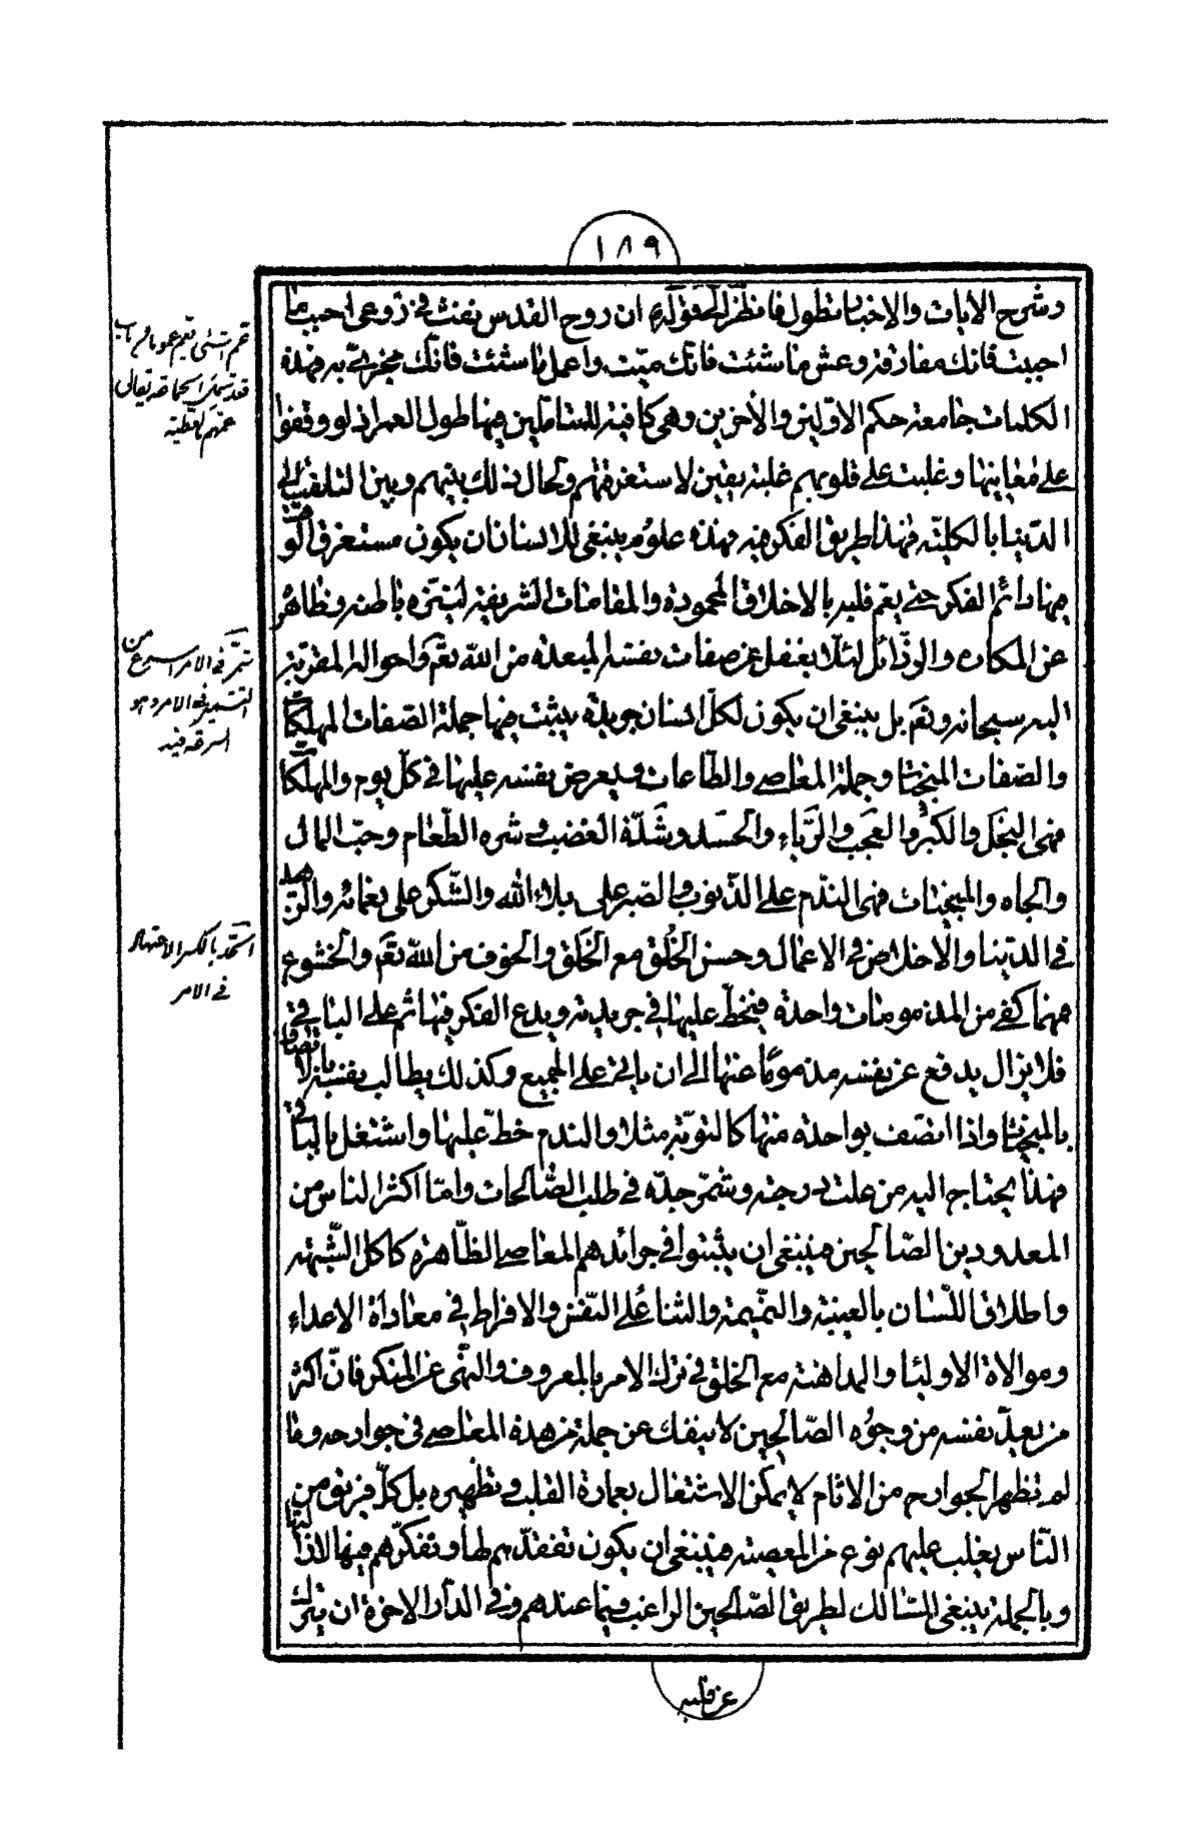 ١٨٩
وشرح الايات والاخبار يطول فانظر الى قوله ان روح القدس نفث في روعي احبب ما
احببت فانك مفارقه وعش ما شئت فانك ميت واعمل ما شئت فانك مجزي به فهذه
الكلمات جامعة حكم الاولين والأخرين وهي كافية للمتاملين فيها طول العمر اذ لو وقفوا
على معانيها وغلبت على قلوبهم غلبة يقين لاستغرقتهم ولحال ذلك بينهم وبين التلفت الى
الدّنيا بالكليّة فهذا طريق الفكر فيه فهذه علوم ينبغي للانسان ان يكون مستغرق الوقت
فيها دائم الفكر حتى يعم قلبه بالاخلاق المحمودة والمقامات الشريفة لينزه باطنه وظاهره
عن المكاره والرذّائل لئلا يغفل عن صفات نفسه المبعدة من الله تعم واحواله المقربة
اليه سبحانه وتعم بل ينبغي ان يكون لكل انسان جريدة يثبت فيها جملة الصّفات المهلكات
والصّفات المنجيات وجملة المعاصي والطّاعات ويعرض نفسه عليها في كلّ يوم والمهلكات
فهي البخل والكبر والعجب والرّياء والحسد وشدّة الغضب وشره الطّعام وحبّ المال
والجاه والمنجيات فهي النّدم على الذّنوب والصّبر على بلاء الله والشّكر على نعمائه والزّهد
في الدّنيا والاخلاص في الاعمال وحسن الخُلق مع الخَلق والخوف من الله تعم والخشوع
فمهما كفى من المذمومات واحدة فيخطّ عليها في جريدته ويدع الفكر فيها ثم على الباقي
فلا يزال يدفع عن نفسه مذموما عنها الى ان ياتي على الجميع وكذلك يطالب نفسه بالاتصاف
بالمنجيات واذا اتصف بواحدة منها كالتوبة مثلا والندم خطّ عليها واشتغل بالباقي
فهذا يحتاج اليه من علت درجته وشمّر جدّه في طلب الصّالحات وامّا اكثر الناس من
المعدودين الصّالحين فينبغي ان يثبتوا في جرائدهم المعاصي الظّاهرة كاكل الشّبهة
واطلاق اللّسان بالغيبة والنّميمة والثناء على النّفس والافراط في معاداة الاعداء
وموالاة الاولياء والمداهنة مع الخلق في ترك الامر بالمعروف والنّهى عن المنكر فانّ اكثر
من يعدّ نفسه من وجوه الصّالحين لا ينفك عن جملة من هذه المعاصي في جوارحه وما
لم تطهر الجوارح من الاثام لا يمكن الاشتغال بعمارة القلب وتطهيره بل كلّ فريق من
النّاس يغلب عليهم نوع من المعصية فينبغي ان يكون تفقدّهم لها وتفكّرهم فيها
وبالجملة ينبغي للسّالك لطريق الصّالحين الراغب فيما عندهم وفي الدّار الاخرة ان يترك
عن قلبه
شمّر في الامر اسرع من
التشمير في الامر وهو
السرعة فيه
الجد بالكسر الاجتهاد
في الامر